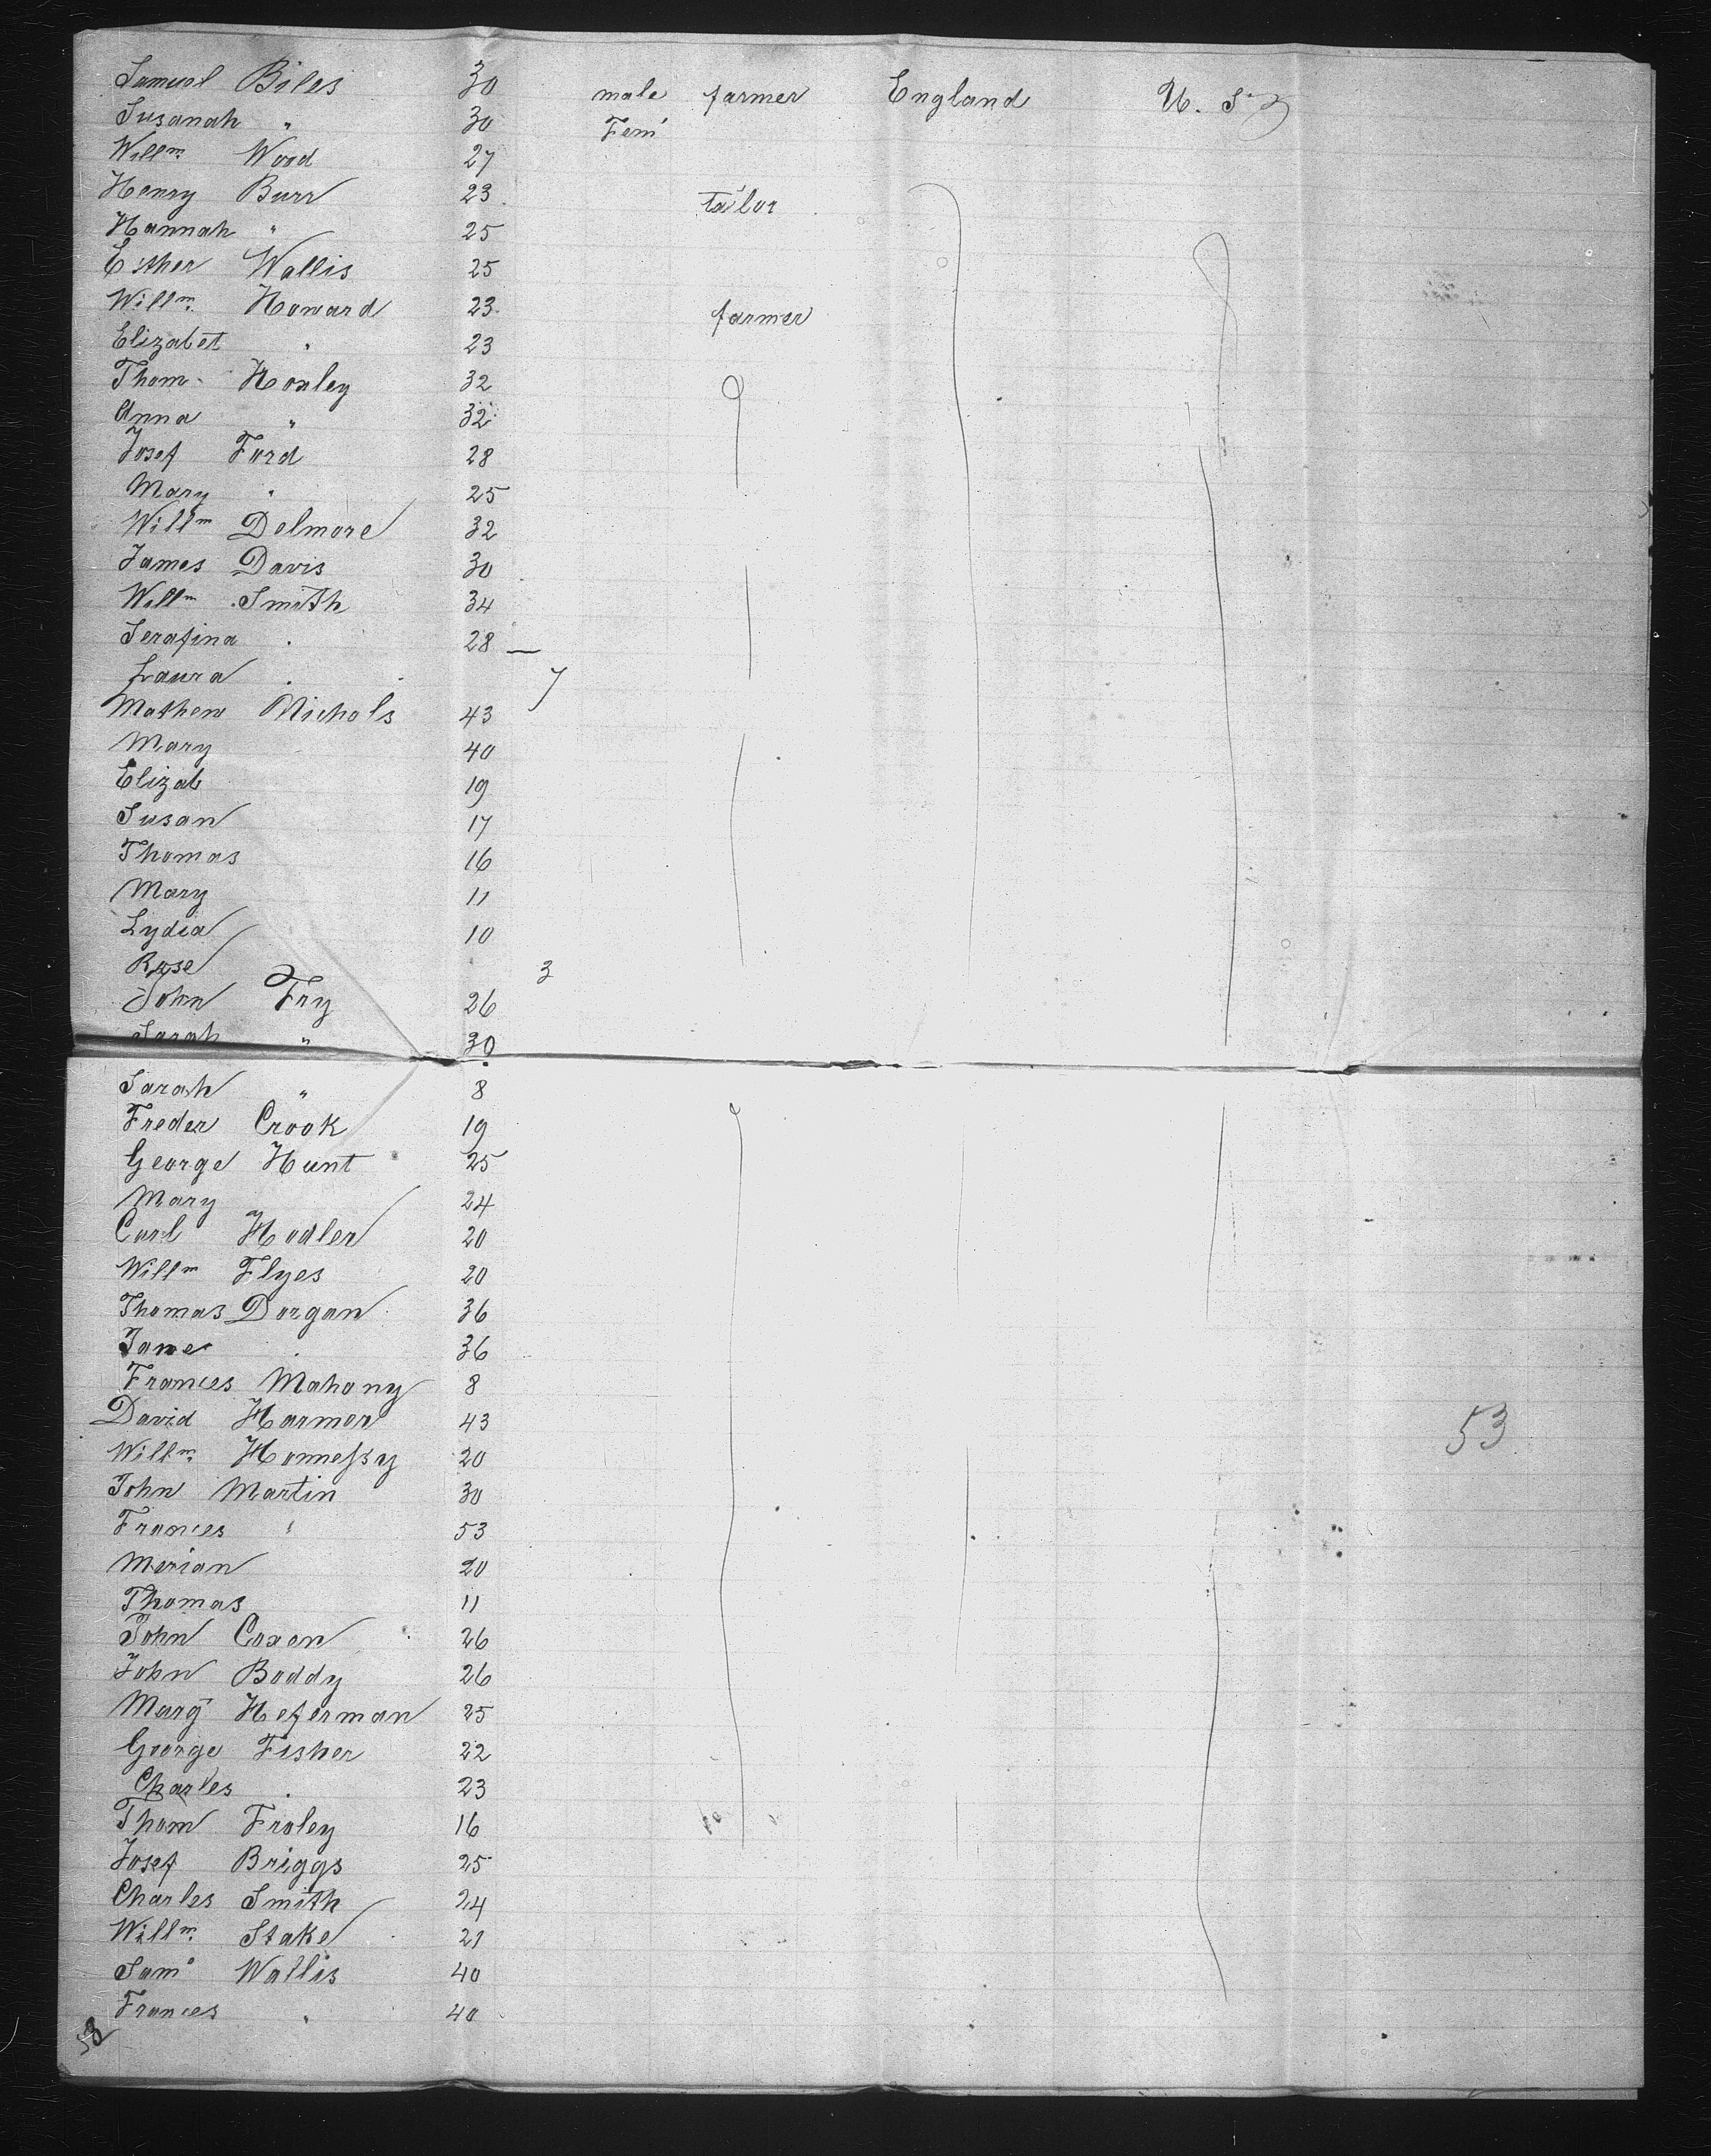 Samuel Biles 30 male farmer England U. S.
Susanah " 30 Fem
Willm Wood 27
Henry Burr 23 tailor
Hannah " 25
Esther Wallis 25
Willm. Howard 23 farmer
Elizabet " 23
Thom. Hoxley 32
Anna " 32
Josef Ford 28
Mary " 25
Willm Delmore 32
James Davis 30
Willm Smith 34
Serafina . 28 —
Laura . . 7
Mathew Nichols 43
Mary 40
Elizab 19
Susan 17
Thomas 16
Mary 11
Lydia 10
Rose 3
John Fry 26
Sarah " 30
Sarah " 8
Freder Crook 19
George Hunt 25
Mary 24
Carl Hodler 20
Willm Flyes 20
Thomas Dorgan 36
Jane . 36
Frances Mahony 8
David Harmer 43
53
Willm. Honnessy 20
John Martin 30
Frances " 53
Merian 20
Thomas 11
John Coxon 26
John Boddy 26
Marg Heferman 25
George Fisher 22
Charles . 23
Thom Froley 16
Josef Briggs 25
Charles Smith 24
Willm. Stake 21
Sam Wallis 40
Frances " 40
53